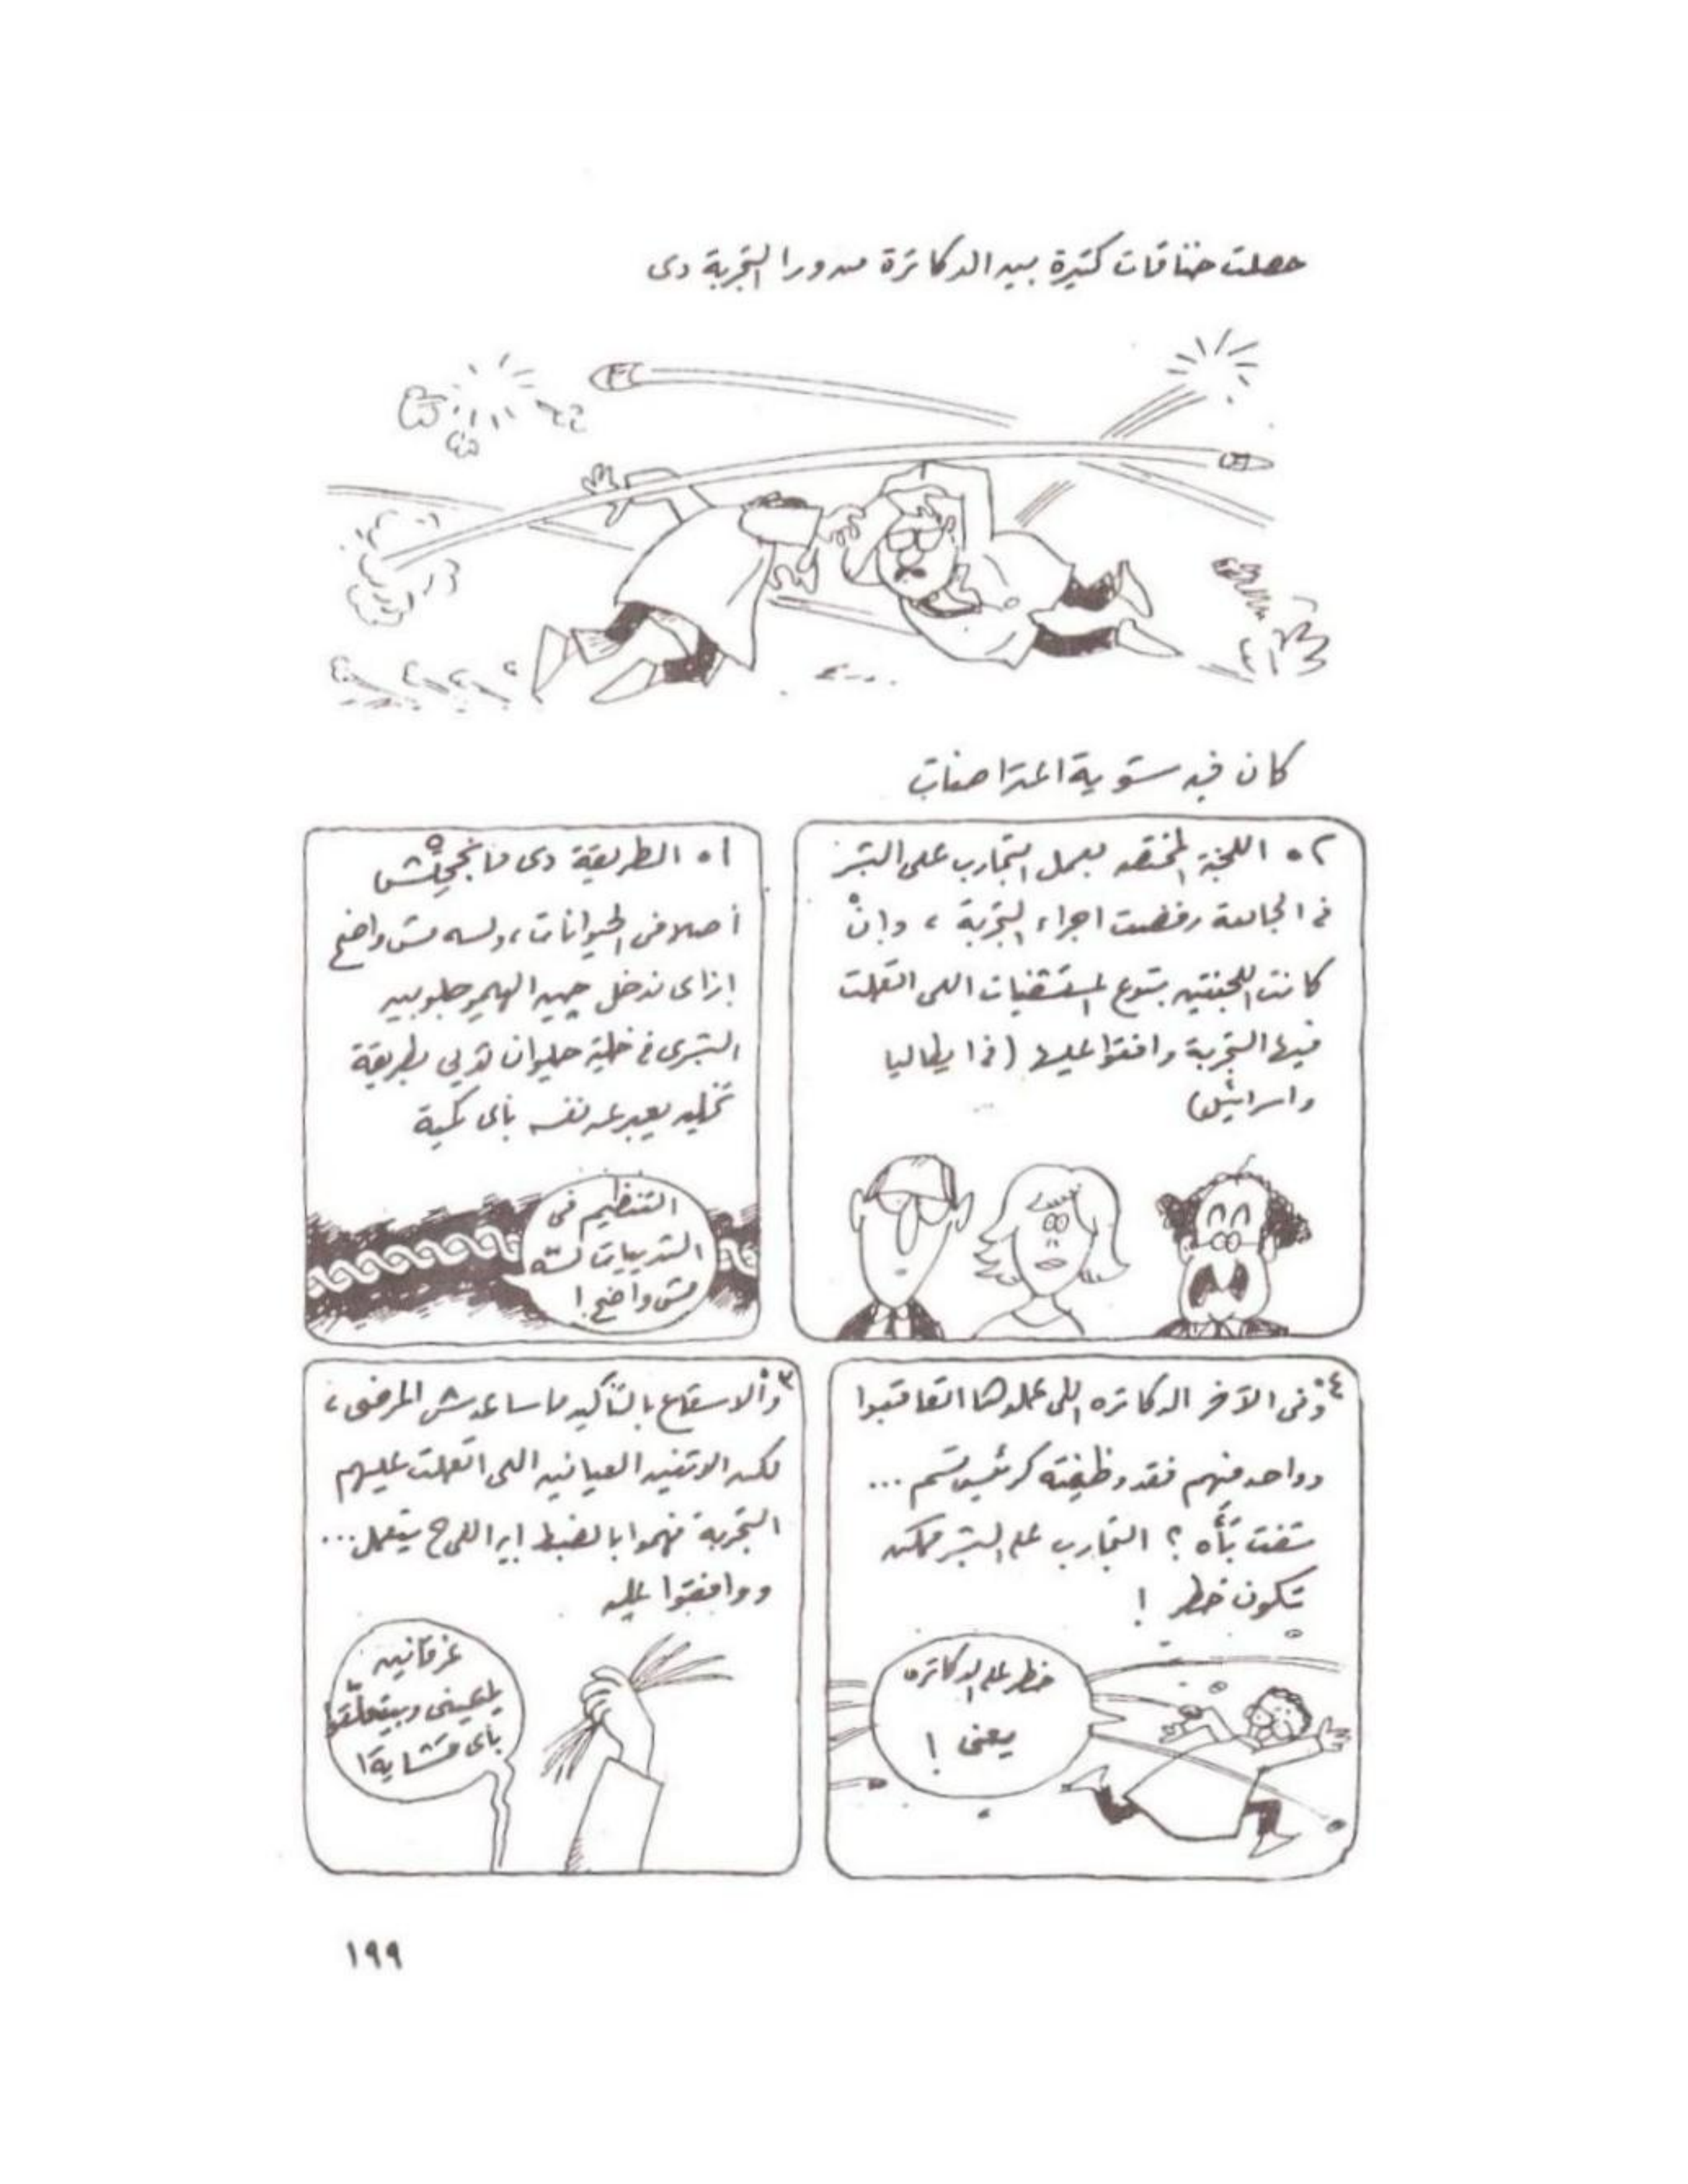 حصلت خناقات كتيرة بين الدكاترة من ورا التجربة دى
كان فيه شوية اعتراضات
٠١ الطريقة دى ما نجحتش
أصلا فى الحيوانات، ولسه مش واضح
ازاى ندخل چين الهيموجلوبين
البشرى فى خلية حيوان ثديى بطريقة
تخليه يعبر عن نفسه بأى كمية
التنظيم فى
الثدييات لسّه
مش واضح!
٠٢ اللجنة المختصه بعمل التجارب على البشر
فى الجامعة رفضت اجراء التجربة، وإنْ
كانت اللجنتين بتوع المستشفيات اللى اتعملت
فيها التجربة وافقوا عليها (فى ايطاليا
واسرائيل)
٠٣ والاستقطاع بالتأكيد ما ساعدش المرضى،
لكن الاتنين العيانين اللى اتعملت عليهم
التجربة فهموا بالضبط ايه اللى ح يتعمل...
ووافقوا عليه
غرقانين
يا عينى وبيتعلّقوا
بأى قشاية!
٠٤ وفى الآخر الدكاتره اللى عملوها اتعاقبوا
وواحد منهم فقد وظيفته كرئيس قسم...
شفت بأه؟ التجارب على البشر ممكن
تكون خطر!
خطر على الدكاتره
يعنى!
١٩٩